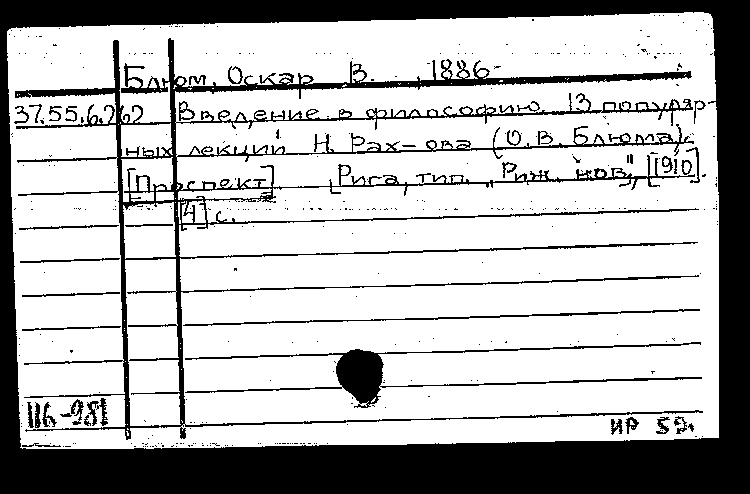 Блюм, Оскар В. , 1886-
37.55.6.262 Введение в философию. 13 популяр-
ных лекций Н. Рах-ова (О.В. Блюма).
[Проспект] [Рига, тип. "Риж. нов.", [1910].
[4] с.
116-981
ИР 59.